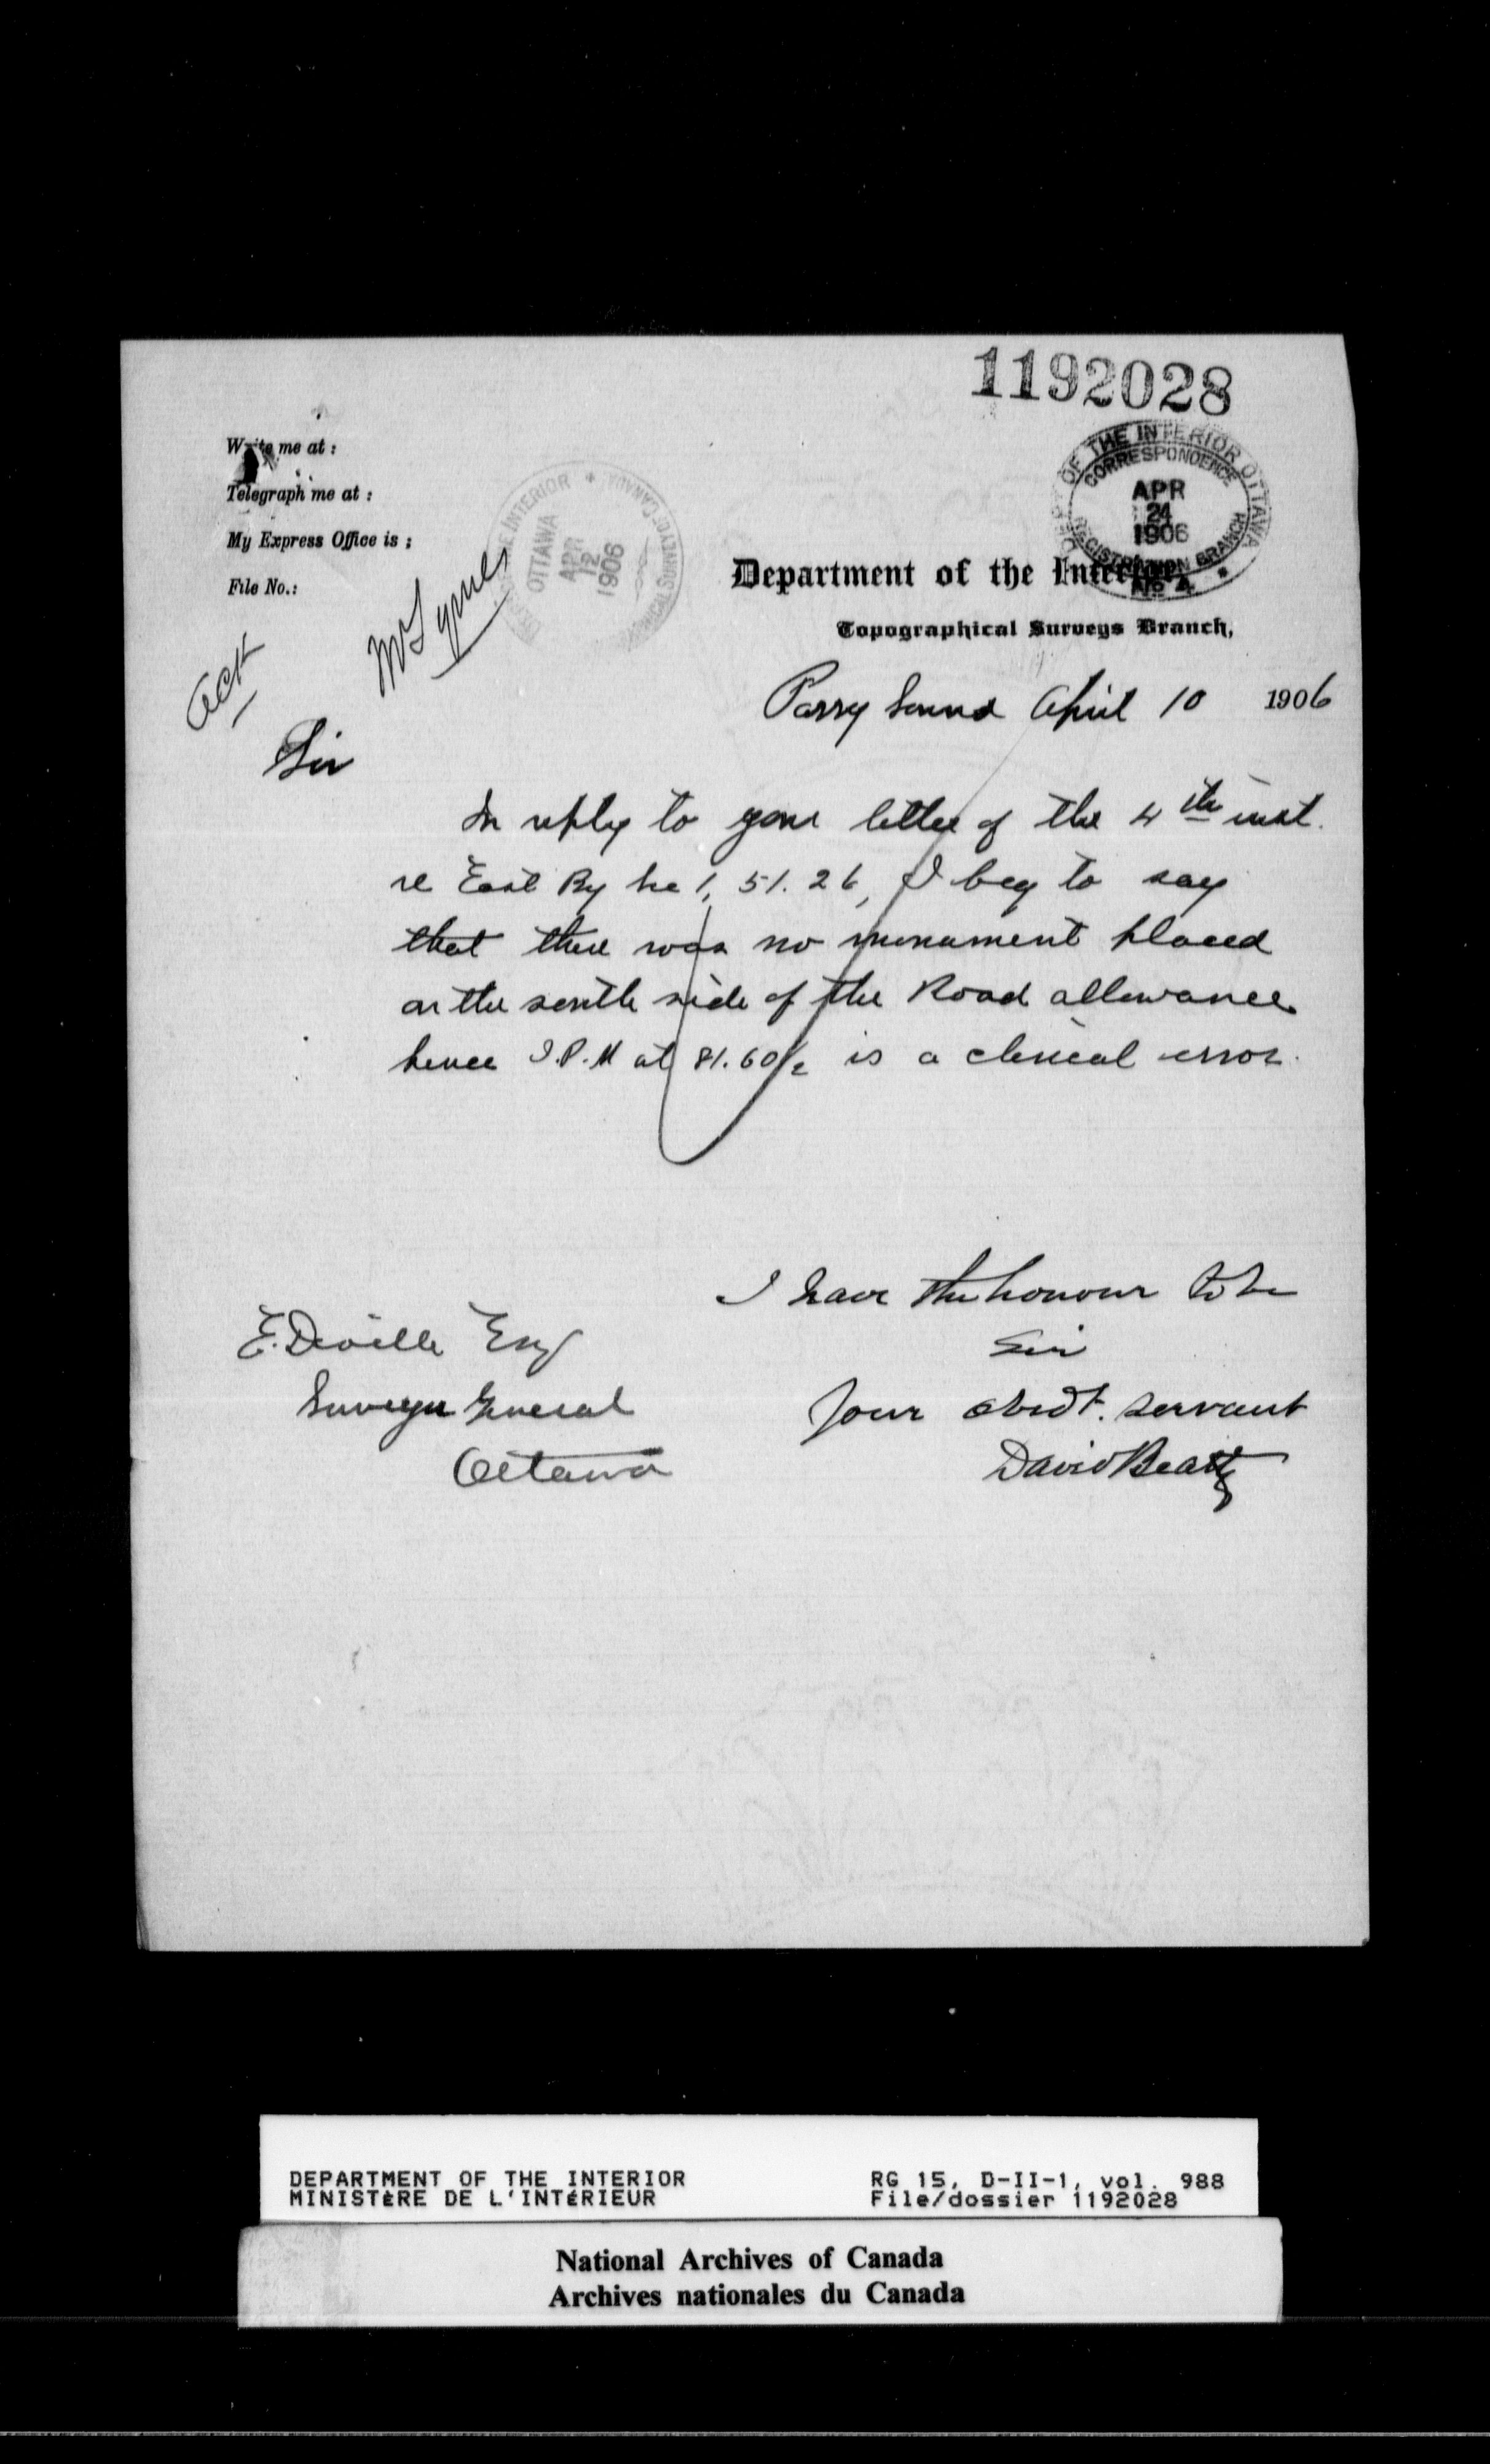 1192028
Write me at :
Telegraph me at :
My Express Office is :
File No.:
OF THE INTERIOR OTTAWA
CORRESPONDENCE
APR
24
1906
REGISTRATION BRANCH
No 4
INTERIOR
OTTAWA
APR
12
1906
SURVEYS OF CANADA
Department of the Interior
Topographical Surveys Branch,
Ack
Mr Symes
Parry Sound April 10 1906
Sir
In reply to your letter of the 4th inst.
re East By Sec 1, 51. 26, I beg to say
that there was no monument placed
on the south side of the Road allowance
hence I.P.M at 81.60½ is a clerical error.
I have the honour to be
Sir
Your obedt. servant
David Beatty
E. Deville Esq
Surveyor General
Ottawa
DEPARTMENT OF THE INTERIOR
MINISTÈRE DE L'INTÉRIEUR
RG 15, D-II-1, vol. 988
File/dossier 1192028
National Archives of Canada
Archives nationales du Canada